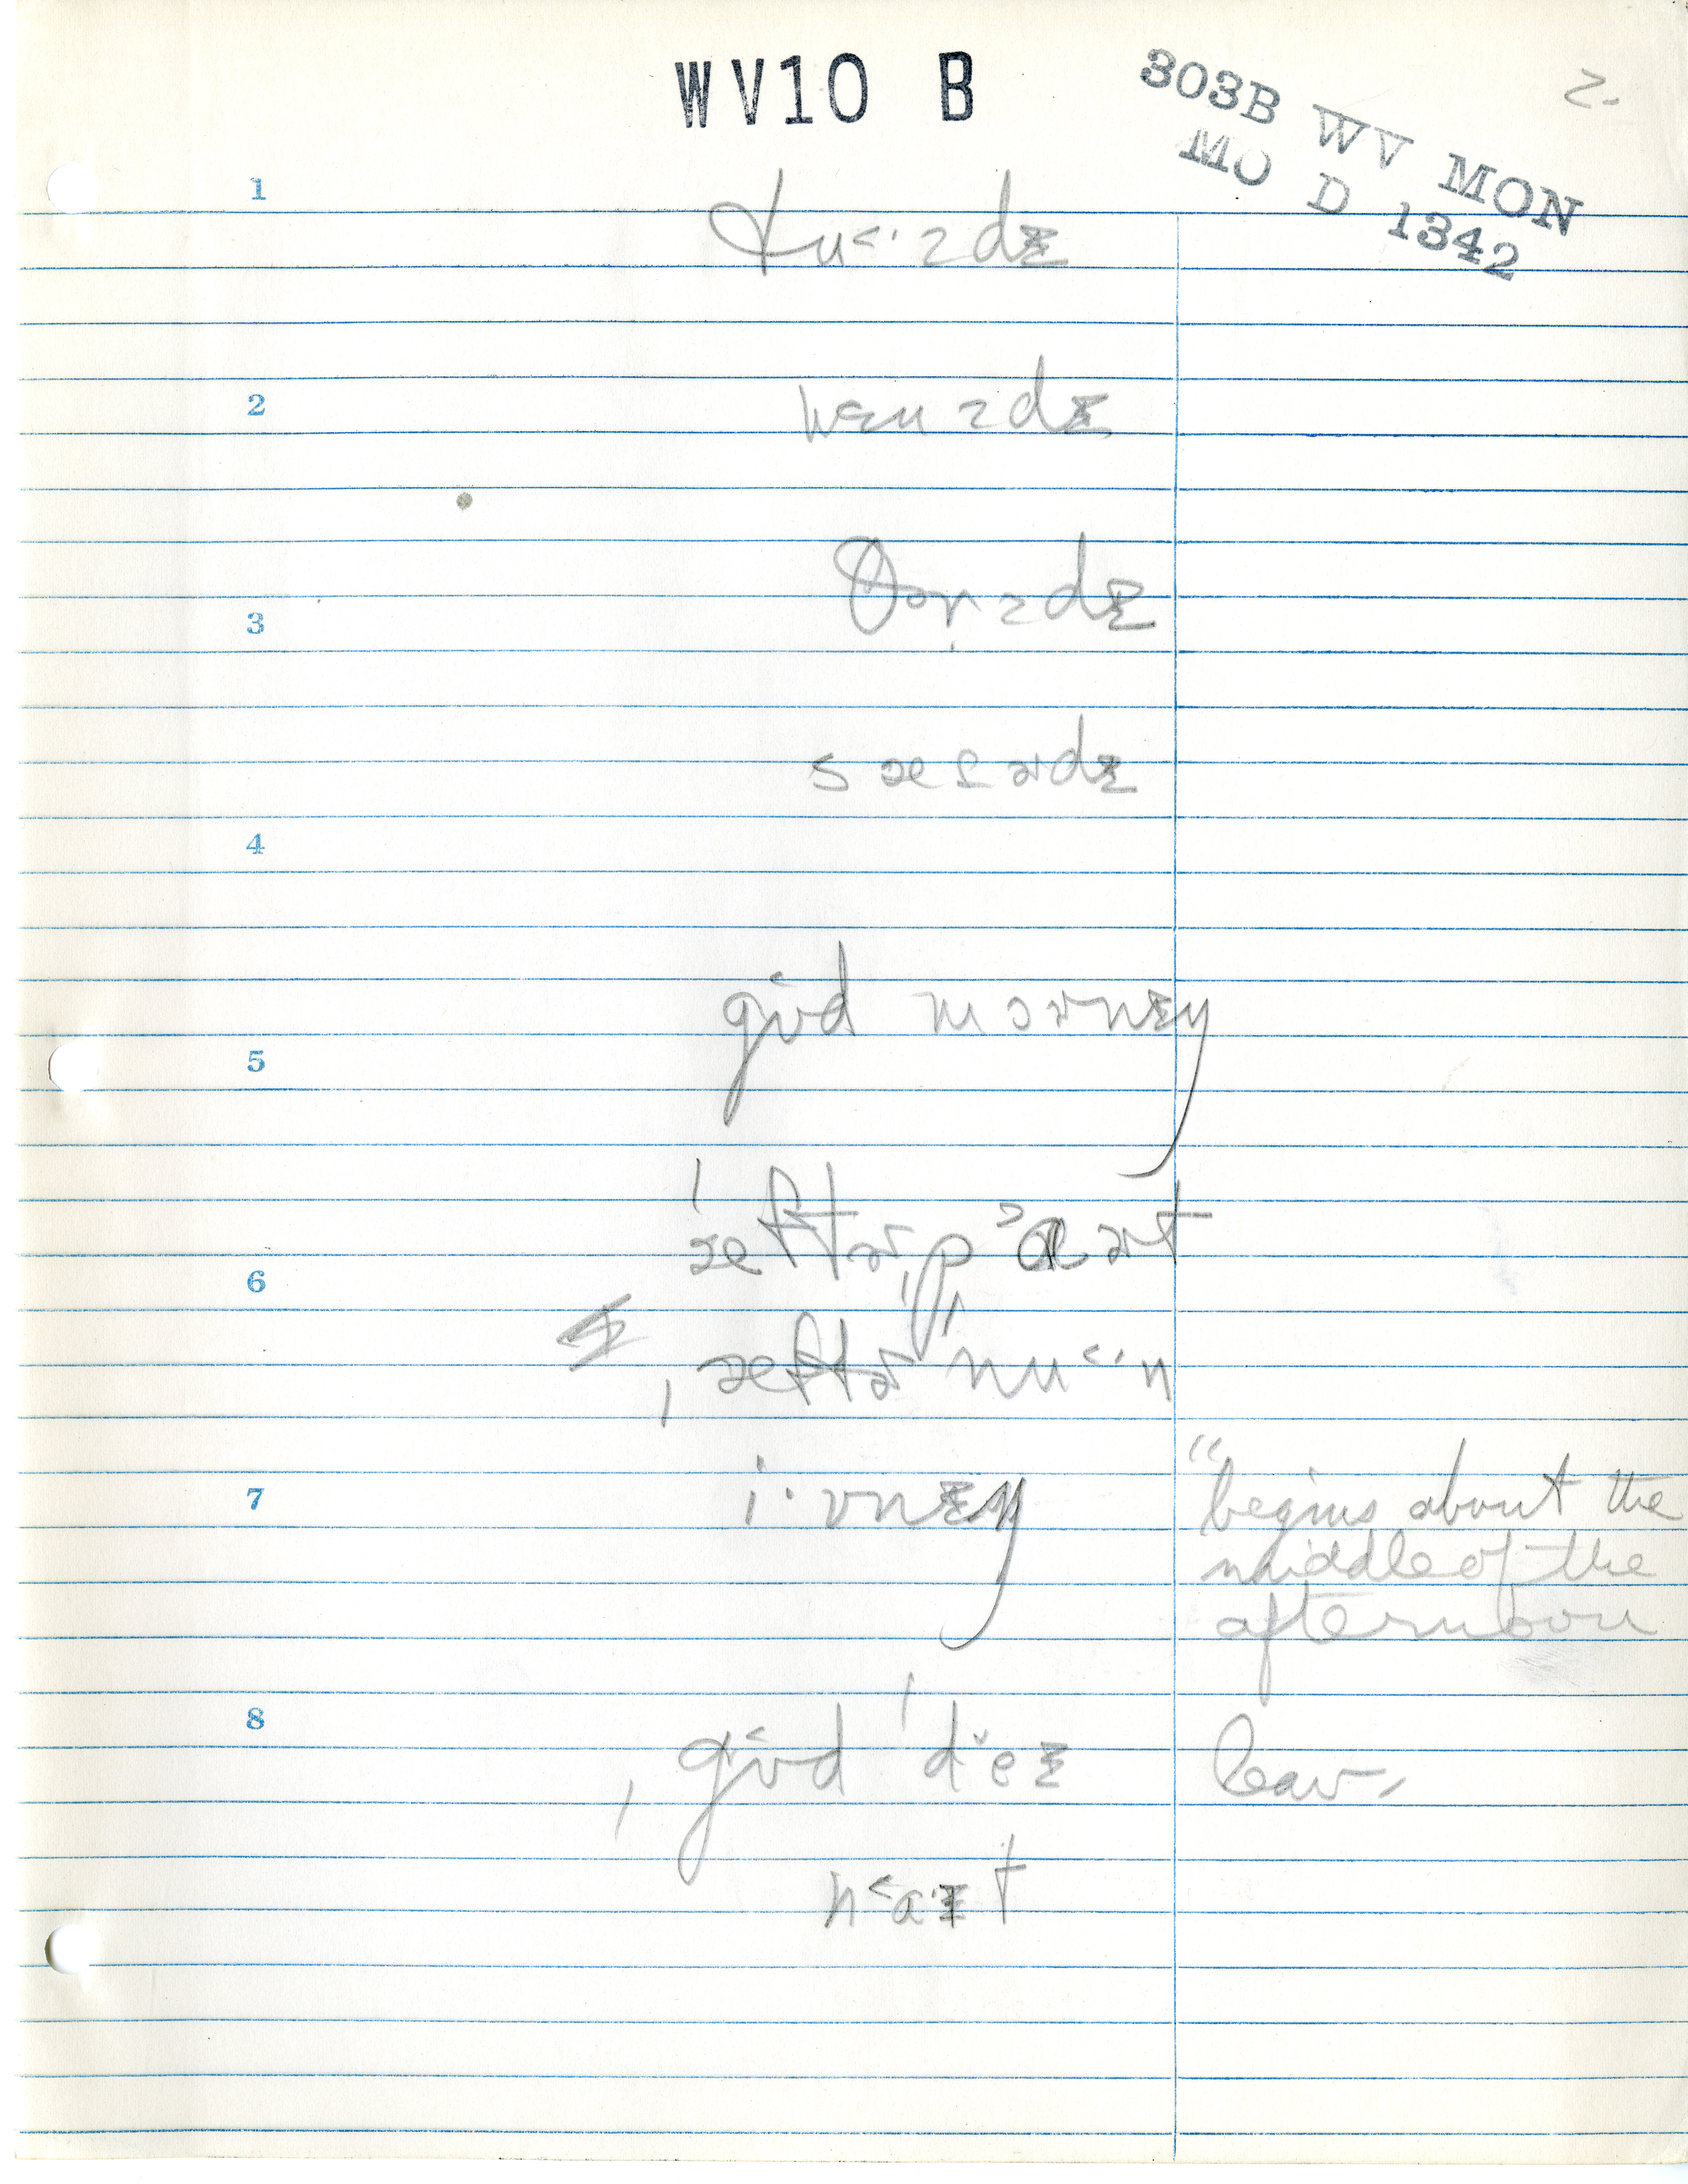 WV10 B
303B WV MON
MO D 1342
2.
1
tu˂·zdɪ
2
wɛnzdɪ
3
θɚzdɪ
sætɚdɪ
4
gʊd mɔɚnɪŋ
5
ˈæftɚˌpɑɚt
6
ˌæftɚˈnu˂·n
7
i·vnɪŋ
"begins about the
middle of the
afternoon
8
ˌgʊd ˈdeɪ
leav-
na·ɪt